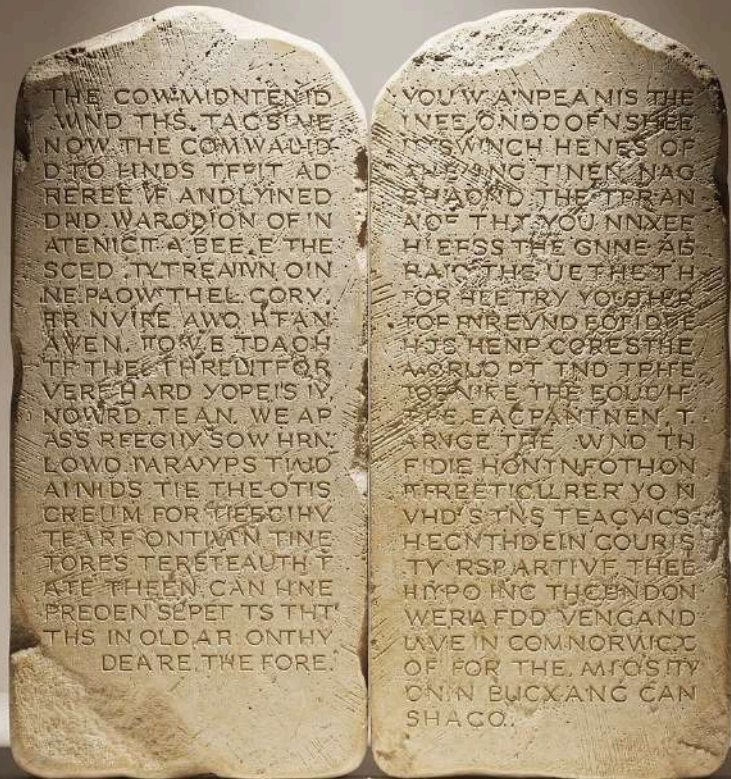 THE COWMIDNTENID
WND THS. TACSIME
NOW THE COMWALID
D TO HINDS TFPIT AD
REREE VF ANDLYINED
DND WARODION OF IN
ATENICIT A BEE.E THE
SCED TYTREAIVN OIN
NE.PAOW THEL CORY.
HR NVIRE AWO HTAN
AVEN. TOVE TDAOH
TF THEL THRLUTFOR
VERE HARD YOPEIS IY,
NOWRD TEAN. WE AP
ASS RFEGIIY SOW HRN.
LOWD TARAVYPS TIUD
AINIDS TIE THE OTIS
CREUM FOR TIEFCIHY
TEARF ONTIVAN TINE
TORES TERETEAUTH T
ATE THEEN CAN HNE
PREOEN SEPET TS THT
THS IN OLD AR ONTHY
DEARE. THE FORE.
YOU W ANPEAMIS THE
INEE ONDDOFNSHEE
SWINCH HENES OF
TINEN NAG
THE TPRAN
NOF THT YOU NNXEE
HIEFSS THE GNNE AB
RAIC THE UETHETH
FOR HEE TRY YOU HER
TOF
HJS HENP CORESTHE
PT TND TPHFE
THE
EACPANTNEN. T
ARNGE THE WND TH
FIDIE HONTNFOTHON
TFREETICURER YO N
VHD'S TNS TEACYICS
HECNTHDEIN COURIS
TY RSPARTIVF THEE
HIYPO INC THCENDON
WERIAFDD VENGAND
UAVE IN COMNORWICC
OF FOR THE. MIOSITY
ON.N BUCXANG CAN
SHACO.